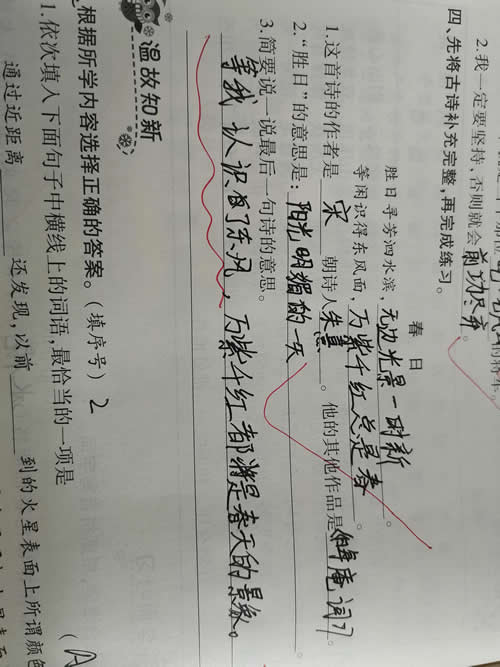 2.我一定要坚持,否则就会前功尽弃。
四、先将古诗补充完整,再完成练习。
春日
胜日寻芳泗水滨,无边光景一时新。
等闲识得东风面,万紫千红总是春。
1.这首诗的作者是宋朝诗人朱熹。他的其他作品是《晦庵词》。
2.“胜日”的意思是:阳光明媚的一天。
3.简要说一说最后一句诗的意思。
等我认识了东风,万紫千红都将是春天的景象。
温故知新
根据所学内容选择正确的答案。(填序号)2
1.依次填入下面句子中横线上的词语,最恰当的一项是(A
通过近距离 还发现,以前 到的火星表面上所谓颜色